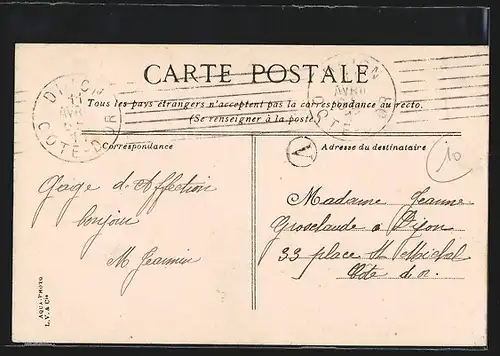 CARTE POSTALE
Tous les pays étrangers n'acceptent pas la correspondance au recto.
(Se renseigner à la poste)
Correspondance
Gage d'Affection
bonjour
M Jeannin
A
Adresse du destinataire
10
Madame Jeanne
Grosclaude à Dijon
33 place St Michel
Côte d'or.
DIJON
11
AVRIL
COTE-D'OR
DIJON
AVRIL
AQUA-PHOTO
L.V. & Cie